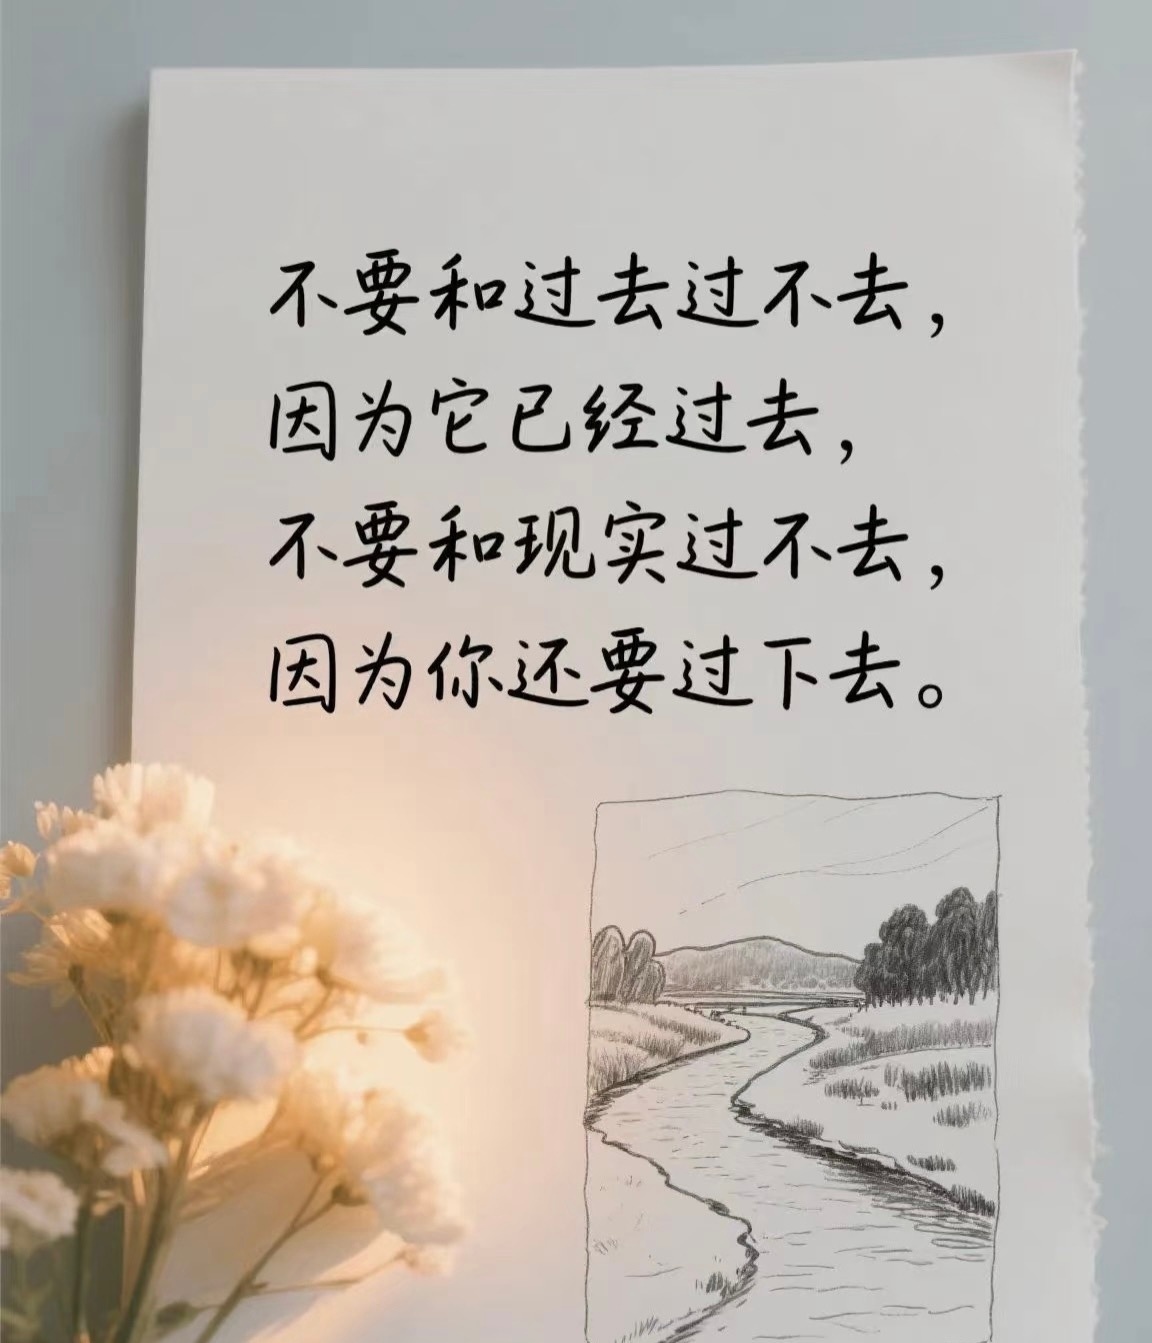 不要和过去过不去，
因为它已经过去，
不要和现实过不去，
因为你还要过下去。